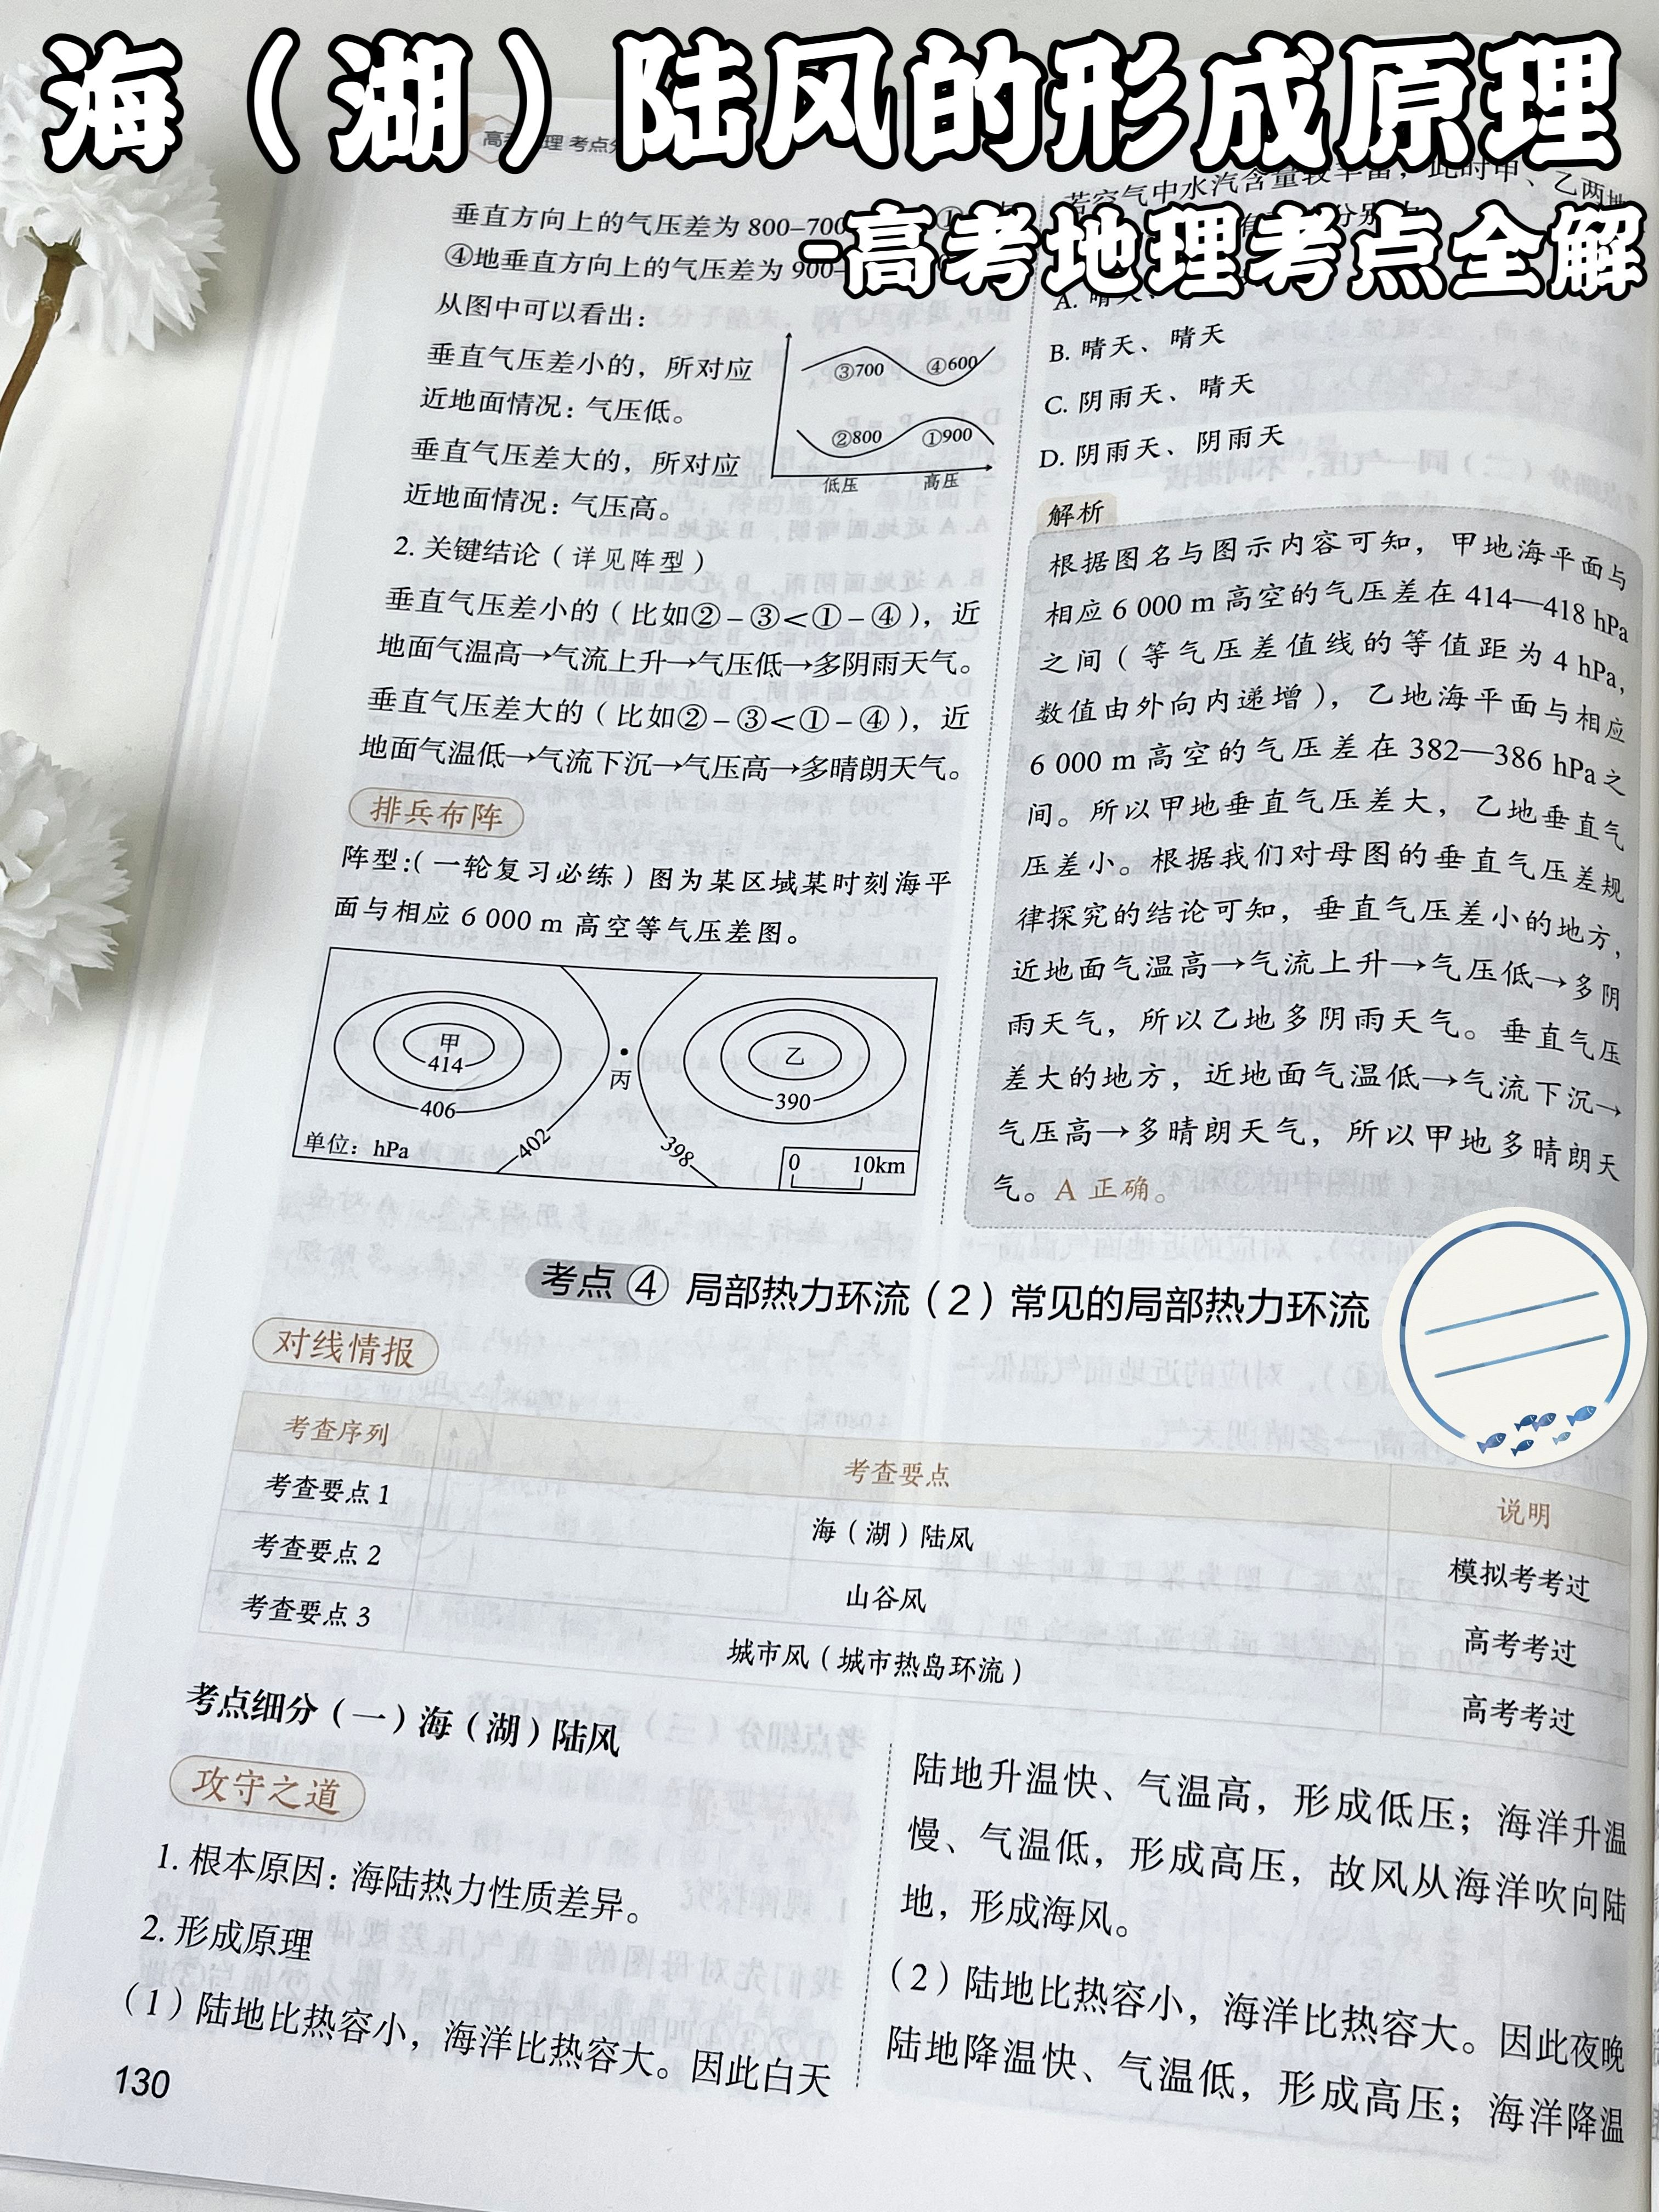 海（湖）陆风的形成原理
-高考地理考点全解
垂直方向上的气压差为 800–700
④地垂直方向上的气压差为 900–
从图中可以看出：
垂直气压差小的，所对应
近地面情况：气压低。
垂直气压差大的，所对应
近地面情况：气压高。
③700
④600
②800
①900
低压
高压
2. 关键结论（详见阵型）
垂直气压差小的（比如②－③<①－④），近
地面气温高→气流上升→气压低→多阴雨天气。
垂直气压差大的（比如②－③<①－④），近
地面气温低→气流下沉→气压高→多晴朗天气。
排兵布阵
阵型：（一轮复习必练）图为某区域某时刻海平
面与相应 6 000 m 高空等气压差图。
甲
414
406
402
丙
398
乙
390
单位：hPa
0 10km
若空气中水汽含量较丰富，此时甲、乙两地
B. 晴天、晴天
C. 阴雨天、晴天
D. 阴雨天、阴雨天
解析
根据图名与图示内容可知，甲地海平面与
相应 6 000 m 高空的气压差在 414—418 hPa
之间（等气压差值线的等值距为 4 hPa，
数值由外向内递增），乙地海平面与相应
6 000 m 高空的气压差在 382—386 hPa 之
间。所以甲地垂直气压差大，乙地垂直气
压差小。根据我们对母图的垂直气压差规
律探究的结论可知，垂直气压差小的地方，
近地面气温高→气流上升→气压低→多阴
雨天气，所以乙地多阴雨天气。垂直气压
差大的地方，近地面气温低→气流下沉→
气压高→多晴朗天气，所以甲地多晴朗天
气。A 正确。
考点④ 局部热力环流（2）常见的局部热力环流
对线情报
考查序列 考查要点 说明
考查要点 1 海（湖）陆风 模拟考考过
考查要点 2 山谷风 高考考过
考查要点 3 城市风（城市热岛环流） 高考考过
考点细分（一）海（湖）陆风
攻守之道
1. 根本原因：海陆热力性质差异。
2. 形成原理
（1）陆地比热容小，海洋比热容大。因此白天
陆地升温快、气温高，形成低压；海洋升温
慢、气温低，形成高压，故风从海洋吹向陆
地，形成海风。
（2）陆地比热容小，海洋比热容大。因此夜晚
陆地降温快、气温低，形成高压；海洋降温
130